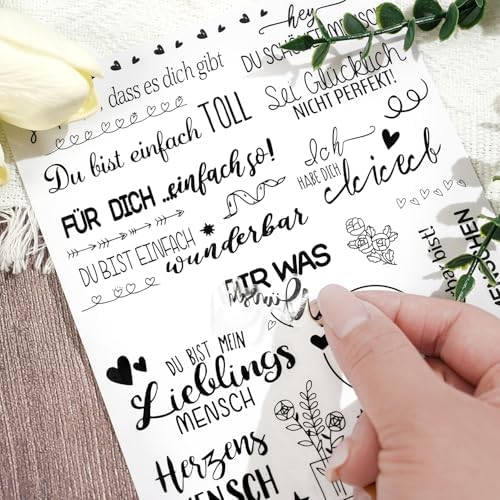 hey
dass es dich gibt
Sei Glücklich
NICHT PERFEKT!
Du bist einfach TOLL
FÜR DICH ...einfach so!
Ich
HABE DICH
DU BIST EINFACH wunderbar
WAS
bist!
DU BIST MEIN
Lieblings
MENSCH
Herzens
MENSCH